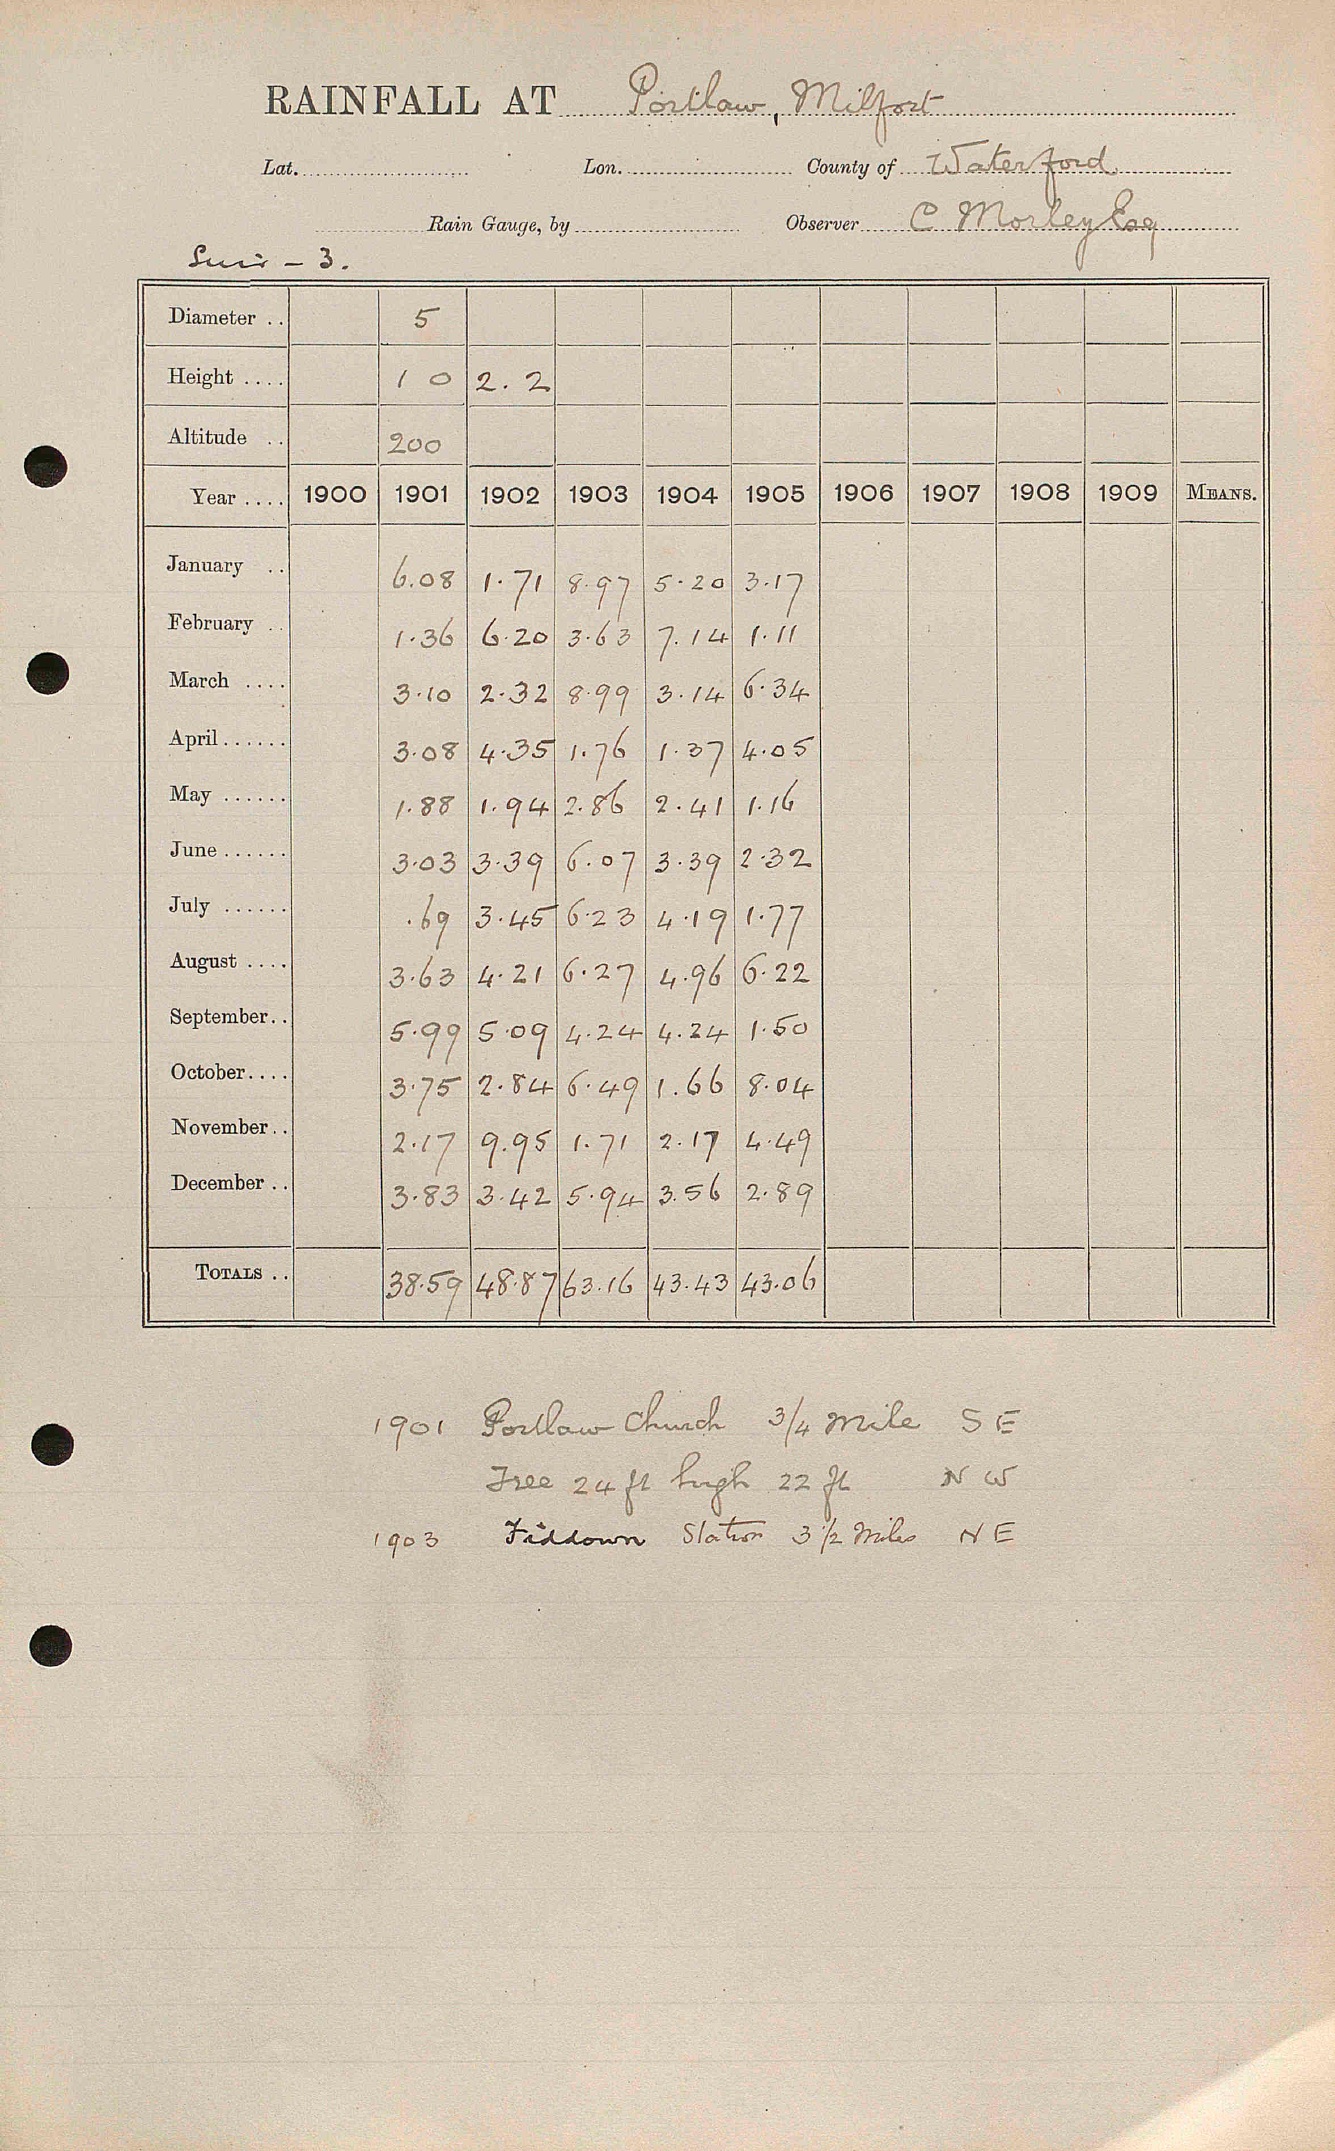 RAINFALL AT Portlaw, Milfort
Lat. Lon. County of Waterford
Rain Gauge, by Observer C Morley Esq
Suir - 3.
Diameter .. 5
Height .... 1 0 2. 2
Altitude .. 200
Year .... 1900 1901 1902 1903 1904 1905 1906 1907 1908 1909 MEANS.
January .. 6.08 1.71 8.97 5.20 3.17
February .. 1.36 6.20 3.63 7.14 1.11
March .... 3.10 2.32 8.99 3.14 6.34
April...... 3.08 4.35 1.76 1.37 4.05
May ...... 1.88 1.94 2.86 2.41 1.16
June ...... 3.03 3.39 6.07 3.39 2.32
July ...... .69 3.45 6.23 4.19 1.77
August .... 3.63 4.21 6.27 4.96 6.22
September.. 5.99 5.09 4.24 4.24 1.50
October.... 3.75 2.84 6.49 1.66 8.04
November.. 2.17 9.95 1.71 2.17 4.49
December .. 3.83 3.42 5.94 3.56 2.89
TOTALS .. 38.59 48.87 63.16 43.43 43.06
1901 Portlaw Church 3/4 Mile S E
Tree 24 ft high 22 ft N W
1903 Fiddown Station 3 1/2 Miles N E